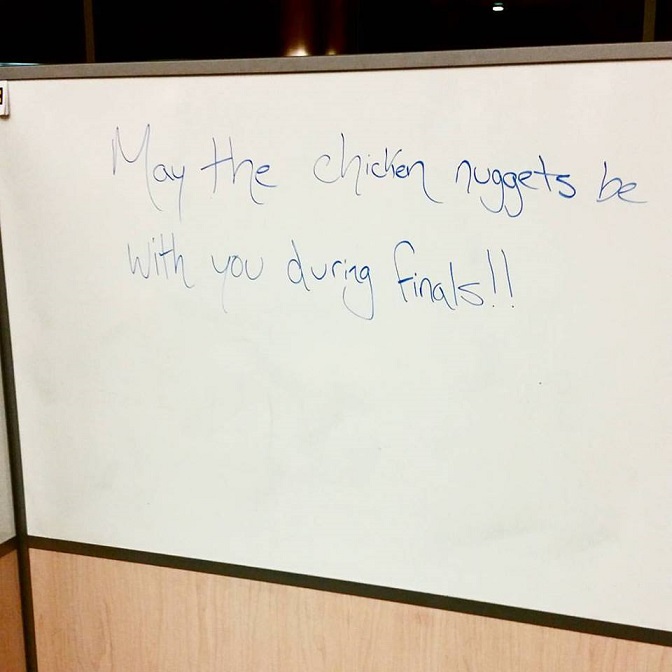 May the chicken nuggets be
with you during finals!!